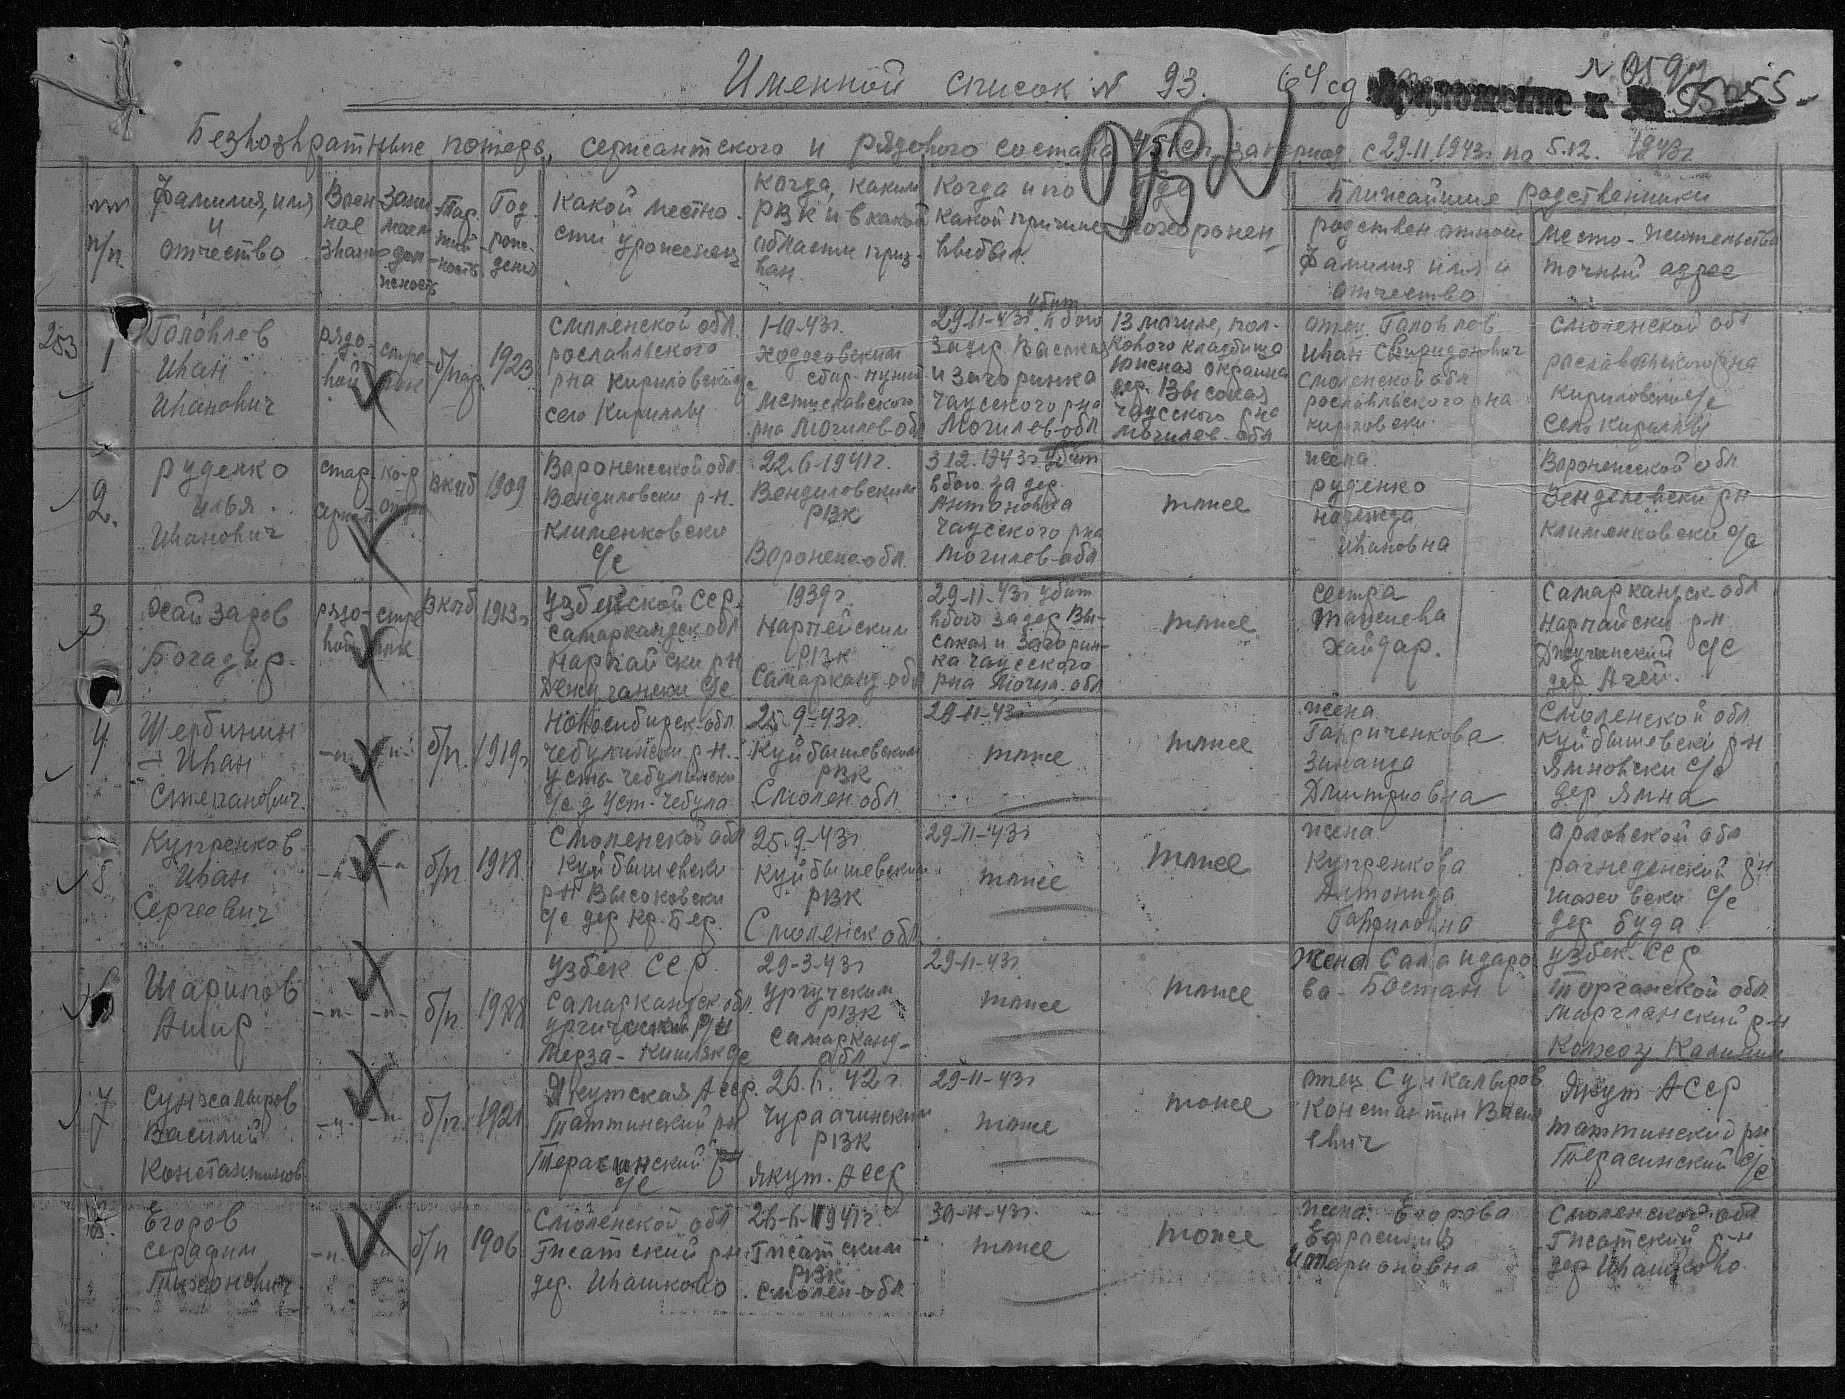 Именной список № 93. 64 сд Приложение к №
Безвозвратные потерь, сержантского и рядового состава 451 сп, за период с 29.11.1943г по 5.12. 1943г.
п/п
Фамилия, имя
и
отчество
Воен
ное
звание
Зани
маем
дол-
жность
Пар.
тий
ность
Год.
рож-
дения
Какой местно-
сти уроженец
Когда, каким
РВК и в какой
области приз-
ван.
Когда и по
какой причине
выбыл.
Где
похоронен
Ближайшие родственники
родствен отнош
Фамилия имя и
отчество
Место-жительства
точный адрес
253
1
Головлев
Иван
Иванович
рядо-
вой
стре-
лок
б/пар.
1923
Смоленской обл
рославльского
рна кириловский с/с
село Кириллы
1-10-43г.
ходосовским
сбор. пункт
Мстиславского
рна Могилев-обл
29-11-43г. убит
в бою
за дер Высокая
и Загоринка
Чаусского рна
Могилев-обл
В могиле, пол-
кового кладбища
южная окраина
дер. Высокая
Чаусского рна
Могилев-обл
отец Головлев
Иван Свиридович
Смоленской обл
рославльского рна
кириловски
Смоленской обл
рославльского рна
Кириловски с/с
село Кириллы
2.
Руденко
Илья
Иванович
стар.
сержан
ко-р
отдел
ВКПб
1909
Воронежской обл
Вендиловски р-н.
Клименковски
с/с
22.6-1941г.
Вендиловским
РВК
Воронеж-обл.
3.12.1943г. убит
в бою за дер.
Антоновка
Чаусского рна
Могилев-обл
тоже
жена
руденко
надежда
Ивановна
Воронежской обл
Венделевски рн
Клименковски с/с
3
Хайзаров
Богадир.
рядо-
вой
стре
лок
ВКПб
1913г
Узбекской ССР.
Самаркандск обл
нарпайски рн
Джугански с/с
1939г.
нарпейским
РВК
Самарканд обл
29-11-43г убит
в бою за дер Вы-
сокая и Загорин-
ка чаусского
рна Могил. обл
тоже
сестра
Хайдар.
Самарканск обл
нарпайски р-н
Джуганский с/с
4
Щербинин
Иван
Степанович.
-"-
-"-
б/п.
1919г
Новосибирск обл
чебулински р-н.
усть-чебулински
с/с д Уст-чебула
25-9-43г.
Куйбышевским
РВК
Смолен обл
29-11-43г
тоже
тоже
жена
Гавриченкова
Зинаида
Дмитриовна
Смоленской обл
куйбышевски р-н
Ямновски с/с
дер Ямна
5
Купренков
Иван
Сергеевич
-"-
-"-
б/п
1918.
Смоленской обл
Куйбышевски
р-н Высоковски
с/с дер Кр. Бер.
25.9-43г
Куйбышевским
РВК
Смоленск обл
29-11-43г
тоже
тоже
жена
Купренкова
Антонида
Гавриловна
Орловской обл
рагнеденской рн
шаховски с/с
дер буда
6
Шарипов
Ашир
-"-
-"-
б/п.
Узбек ССР
Самаркандск обл.
29-3-43г
Ургучским
РВК
Самарканд-
обл
29-11-43г
тоже
тоже
жена
Бостан
узбек. ССР
обл
Маргланский р-н
Колхоз Калинин
7
Сункалыров
Василий
Константинов
-"-
-"-
б/п.
1921
Якутская АССР.
Таттинский рн
Терасинский
с/с
26.6. 42г
Чурапчинским
РВК
Якут. АССР
29-11-43г
тоже
тоже
отец Сункалыров
Константин Васил
евич
Якут АССР
таттинский рн
Терасинский с/с
8
Егоров
Серафим
Тихонович
-"-
-"-
б/п
1906
Смоленской обл
Гжатский рн.
дер. Ивашково
26-6-1941г.
Гжатским
РВК
Смолен-обл
30-11-43г.
тоже
тоже
жена. Егорова
Ефросиния
Иларионовна
Смоленской обл
Гжатский р-н
дер Ивашково